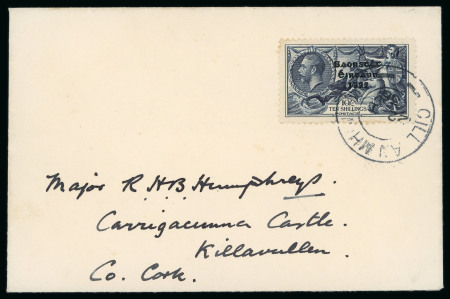 Saorstát
Éireann
1922
10/-
TEN SHILLINGS
CILL A MH
Major R HB Humphreys.
Carrigacunna Castle.
Killavullen.
Co. Cork.